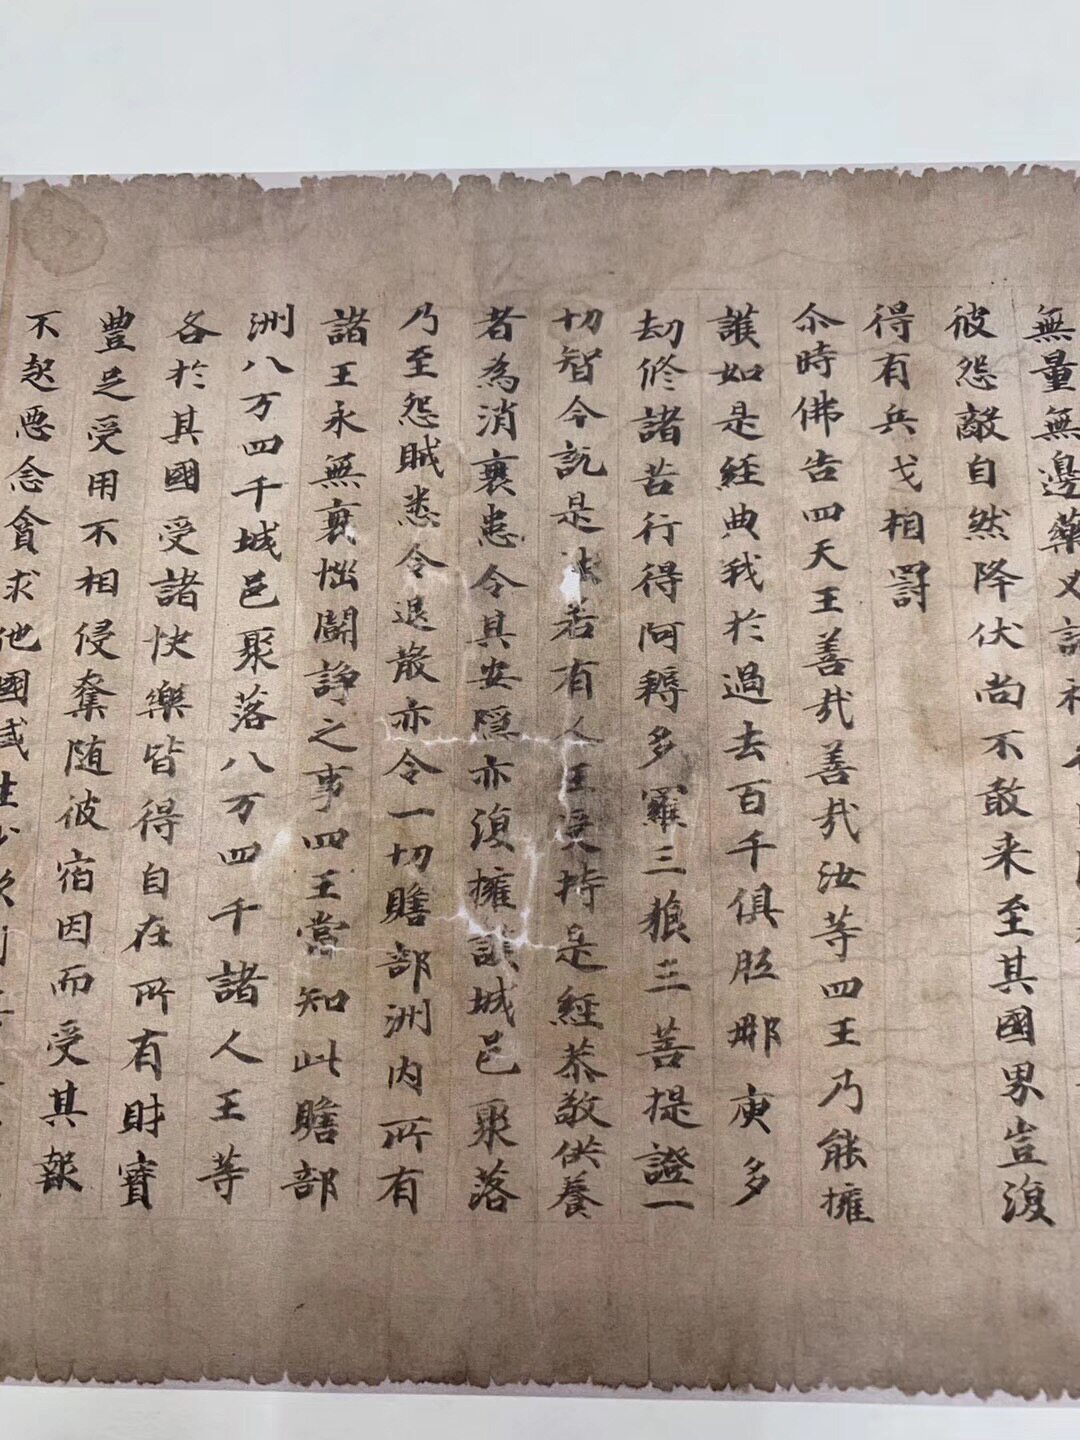 無量無邊藥叉諸
彼怨敵自然降伏尚不敢来至其國界豈復
得有兵戈相罸
尒時佛告四天王善㢤善㢤汝等四王乃能擁
誰如是經典我於過去百千俱胝那庾多
劫修諸苦行得阿耨多羅三藐三菩提證一
切智今說是法若有人王受持是經恭敬供養
者為消衰患令其安隱亦復擁護城邑聚落
乃至怨賊悉令退散亦令一切贍部洲内所有
諸王永無衰惱鬪諍之事四王當知此贍部
洲八万四千城邑聚落八万四千諸人王等
各於其國受諸快樂皆得自在所有財寳
豊足受用不相侵奪随彼宿因而受其報
不起惡念貪求他國咸生少欲